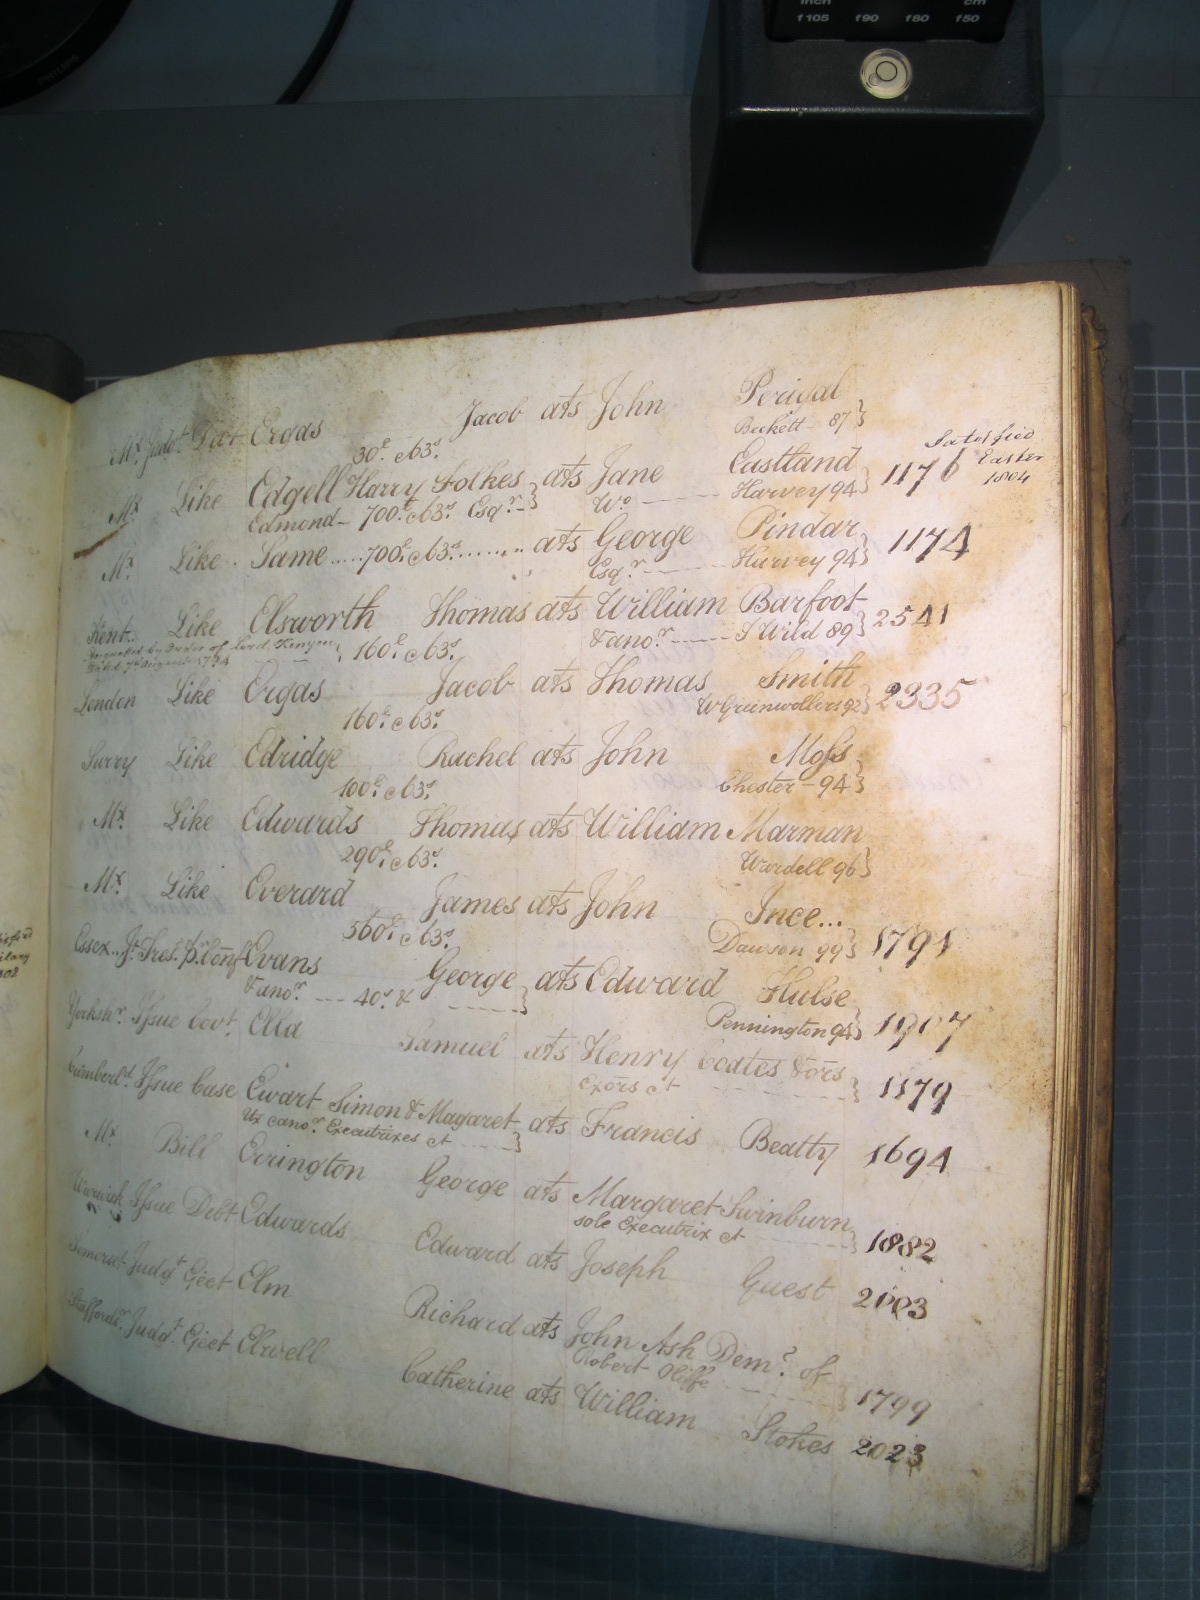 inch cm
f105 f90 f80 f50
PHILIPS
Mx. Judgt. Ergas Jacob ats John Perigal
30£. & 63s. Beckett - 87}
Satisfied
Easter
1804
Mx. Like Edgell Harry Folkes} ats Jane Eastland} 1176
Edmond - 700£. & 63s. Esqr. - Wo. Harvey 94
Mx. Like Same .... 700£. & 63s. ........ ats George Pindar} 1174
Esqr. Harvey 94
Kent Like Elsworth Thomas ats William Barfoot} 2541
by Order of Lord Kenyon 160£. & 63s. & anor. S Wild 89
Dated 7th August 1794
London Like Ergas Jacob ats Thomas Smith} 2335
160£. & 63s. W Greenwollers 92
Surry Like Edridge Rachel ats John Moss
100£. & 63s. Chester - 94}
Mx. Like Edwards Thomas ats William Marman
290£. & 63s. Wardell 96}
Mx. Like Everard James ats John Ince...
560£. & 63s. Dawson 99} 1791
Essex Jt. Tres. p. Conf Evans George ats Edward Hulse
& anor. --- 40s. & } Pennington 94} 1907
Yorkshr. Issue Covt. Ella Samuel ats Henry Coates & ors} 1179
Exors &c
Cumberld. Issue Case Ewart Simon & Magaret ats Francis Beatty 1694
Ux & anor. Executrixes &c }
Mx. Bill Errington George ats Margaret Swinburn} 1882
sole Executrix &c
Warwick Issue Debt Edwards Edward ats Joseph Guest 2003
Somerset Judgt. Eject Elm Richard ats John Ash Deme. of
Robert Oliffe } 1799
Staffordr. Judgt. Eject Elwell Catherine ats William Stokes 2023